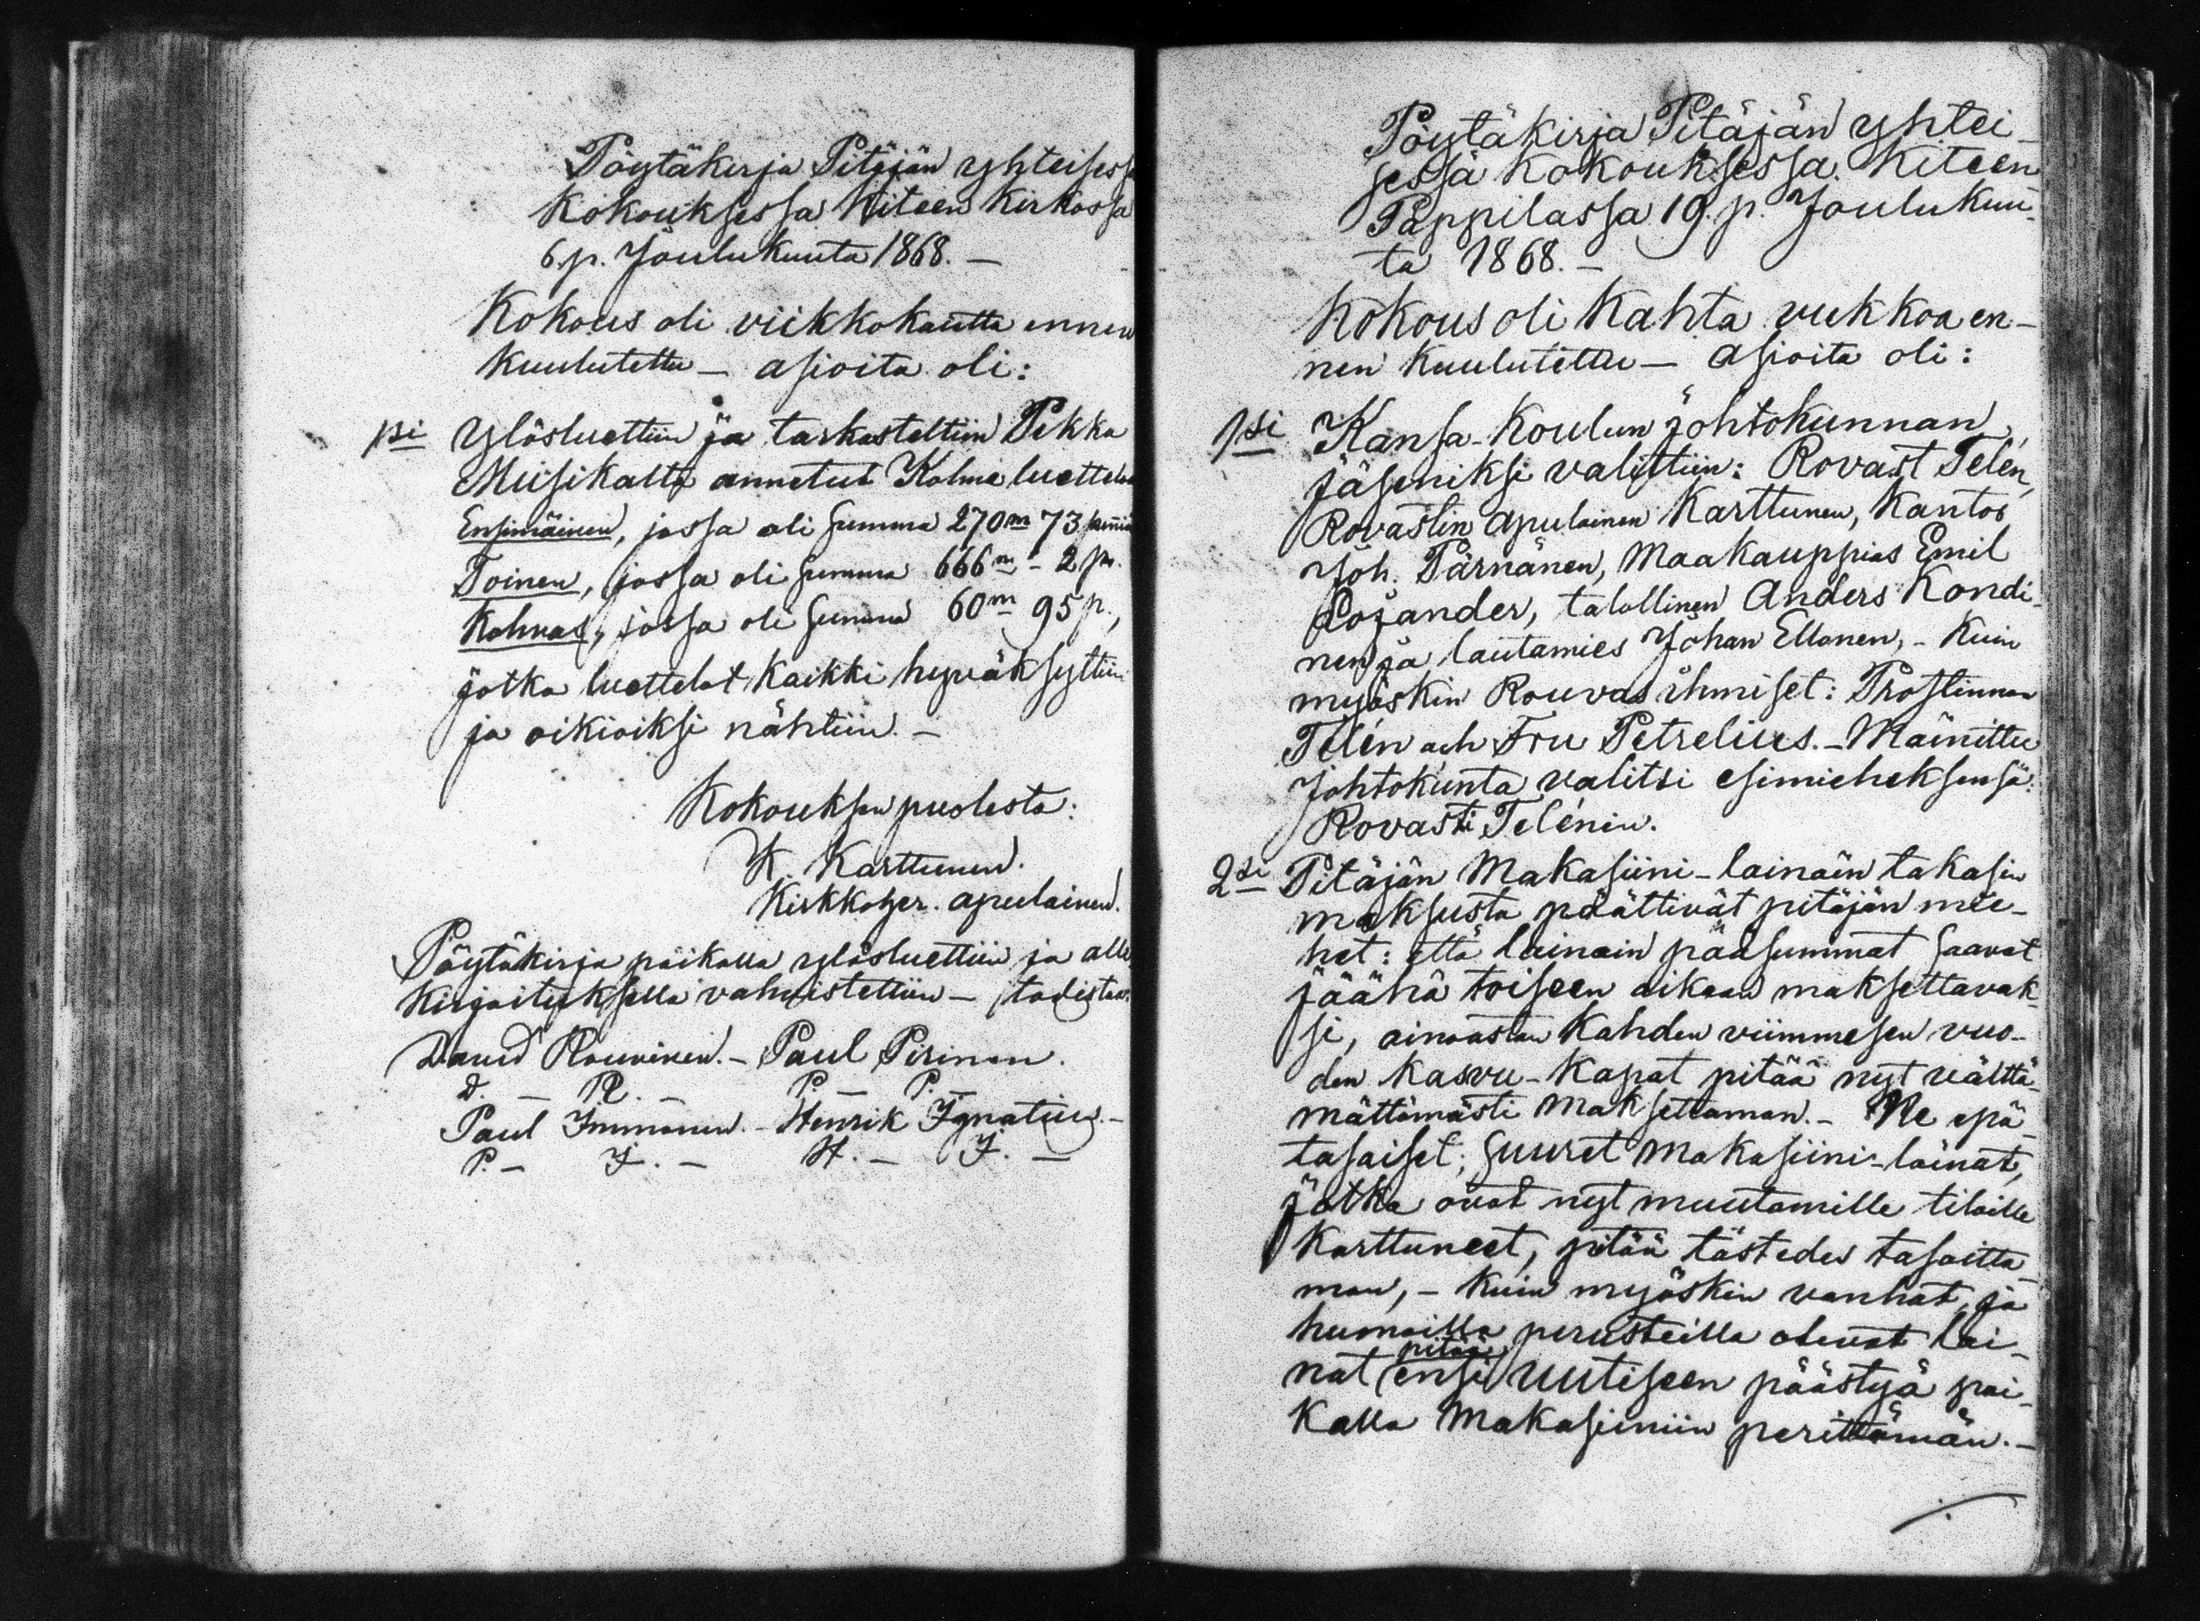 Pöytäkirja Pitäjän yhteisessä
Kokouksessa Kiteen Kirkossa
6 p. Joulukuuta 1868. —
Kokous oli viikkokautta ennen
kuulutettu — asioita oli:
1si Ylösluettiin ja tarkasteltiin Pekka
annetut Kolme luettelot
Ensimäinen, jossa oli summa 270 m 73 penniä
Toinen, jossa oli summa 666 m - 2 p.
Kolmas, jossa oli summa 60 m 95 p.,
jotka luettelot kaikki hyväksyttiin
ja oikioiksi nähtiin. —
Kokouksen puolesta:
K. Karttunen.
Kirkkoher. apulainen.
Pöytäkirja paikalla ylösluettiin ja alle
kirjoituksella vahvistettiin — todistaa.
David Rouvinen. — Paul Pirinen.
D. — R. — P. — P. —
Paul Immonen. — Henrik Ignatius. —
P. — I. — H. — I. —
Pöytäkirja Pitäjän yhtei-
sessä Kokouksessa Kiteen
Pappilassa 19. p. Joulukuu-
ta 1868. —
Kokous oli kahta viikkoa en-
nen kuulutettu — asioita oli:
1si Kansa-Koulun johtokunnan
jäseniksi valittiin: Rovast Telén,
Rovastin apulainen Karttunen, Kantor
Joh. Pärnänen, Maakauppias Emil
Lojander, talollinen Anders Kondi-
nen ja lautamies Johan Ellonen, — Kuin
myöskin Rouvas ihmiset: Prostinnan
Telén och Fru Petrelius. — Mainittu
Johtokunta valitsi esimieheksensä
Rovasti Telénin.
2si Pitäjän Makasiini-lainain takasin
maksusta päättivät pitäjän mie-
het: että lainain pääsummat saavat
jäähä toiseen aikaan maksettavak-
si, ainoastan kahden viimmesen vuo-
den kasvu-kapat pitää nyt välttä-
mättömästi maksettaman. — Ne epä-
tasaiset, suuret makasiini-lainat,
jotka ovat nyt muutamille tiloille
karttuneet, pitää tästedes tasoitta-
man, — kuin myöskin vanhat ja
huonoilla perusteilla olevat lai-
nat pitää ensi uutiseen päästyä pai-
kalla Makasiiniin perittämän. —